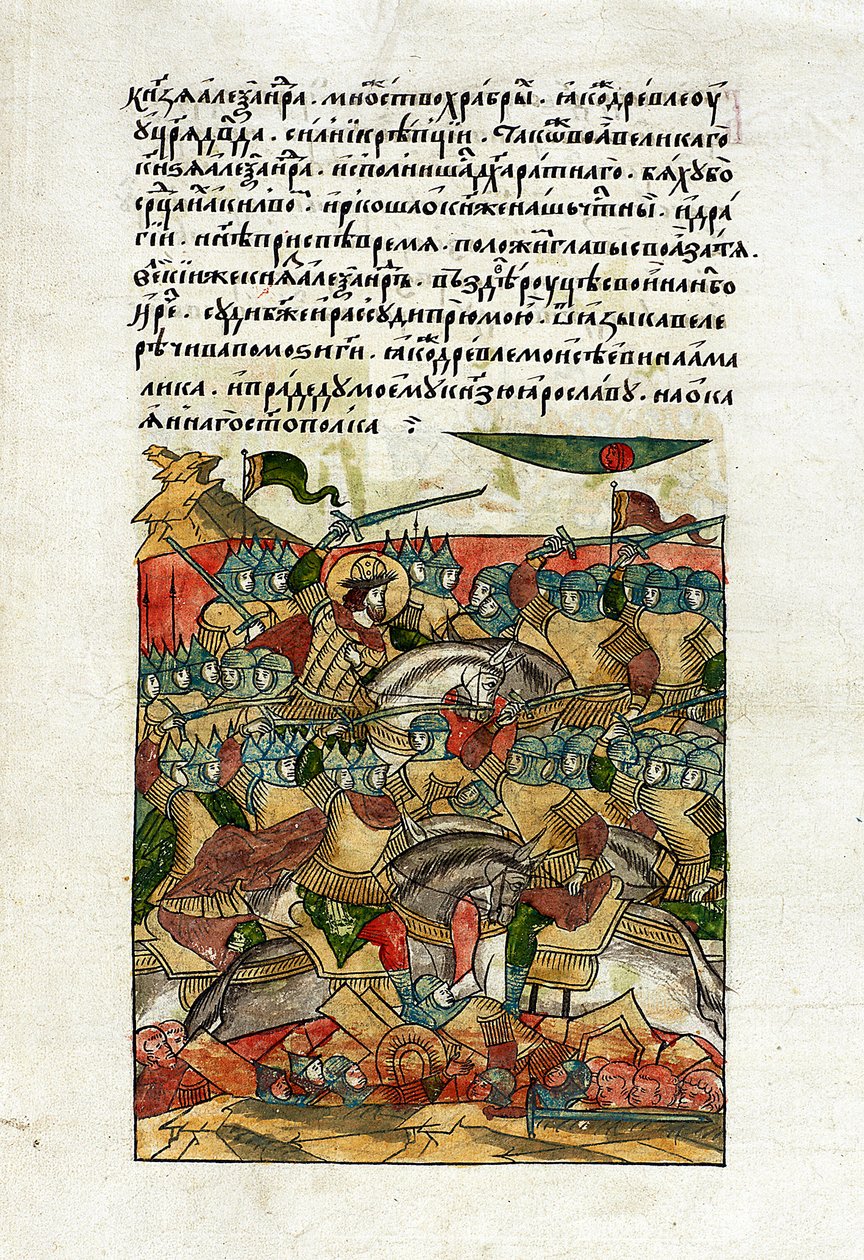 кн҃зѧ алеѯан̾дра . мно́жство храбры́х . ꙗ́коже древле оу҆
у҆ цр҃ѧ дв҃да . силнїи крѣпцїи . та́кож во́а великагѡ
кн҃ѕѧ алеѯан̾дра . и҆сполнишасѧ дꙋ́ха ратнаго . бѧхꙋ бо
срⷣца и҆́мъ а́ки лвѡ́мъ . и҆ рко́ша ѡ҆ кн҃же на́шь чⷭ҇тны́и . и҆ дра
гїи . нн҃ѣ приспѣ времѧ . положи́ти главы своѧ̀ за тѧ̀ .
вели́кїи же кн҃ѕь алеѯан̾дръ . въздѣ́въ рꙋцѣ свои̾ на нб҃о
и҆ рече́ . сꙋди бж҃е и҆ рассꙋди прю̀ мою̀ . ѿ ꙗ҆зыка веле
рѣчива помоѕи́ ми гⷭ҇и . ꙗ́коже древле моисѣе́ви на ама
лика . и҆ прадѣдꙋ моемꙋ кн҃зю ꙗ҆рославꙋ . на ѻ҆ка
ѧ́ннаго ст҃ополка